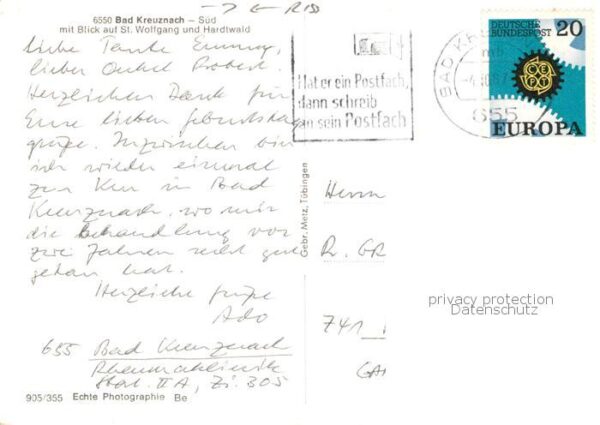 → ← RIS
6550 Bad Kreuznach – Süd
mit Blick auf St. Wolfgang und Hardtwald
liebe Tante Emmy,
lieber Onkel Robert.
Herzlichen Dank für
Eure lieben Geburtstags
grüße. Inzwischen bin
ich wieder einmal
zur Kur in Bad
Kreuznach, wo mir
die Behandlung vor
zwei Jahren recht gut
getan hat.
Herzliche Grüße
Ado
655 Bad Kreuznach
Rheumaklinik
Stat. II A, Zi. 305
905/355 Echte Photographie Be
Gebr. Metz, Tübingen
Hat er ein Postfach,
dann schreib
an sein Postfach
BAD KR
655
DEUTSCHE
BUNDESPOST
20
CEPT
EUROPA
Herrn
R. GR
741
privacy protection
Datenschutz